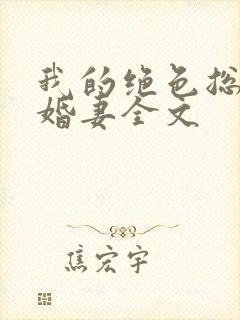 我的绝色总
婚妻全文
焦宏宇